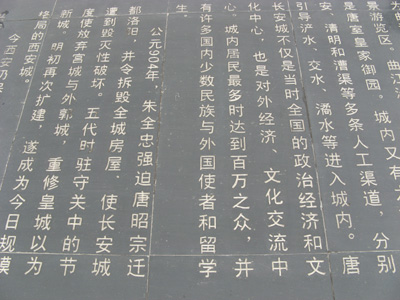 为的
景游览区。曲江
是唐室皇家御园。城内又有六
安、清明和漕渠等多条人工渠道，分别
引导浐水、交水、潏水等进入城内。唐
长安城不仅是当时全国的政治经济和文
化中心，也是对外经济、文化交流中
心。城内居民最多时达到百万之众，并
有许多国内少数民族与外国使者和留学
生。
公元904年，朱全忠强迫唐昭宗迁
都洛阳，并令拆毁全城房屋，使长安城
遭到毁灭性破坏。五代时驻守关中的节
度使放弃宫城与外郭城，重修皇城以为
新城。明初再次扩建，遂成为今日规模
格局的西安城。
今西安仍